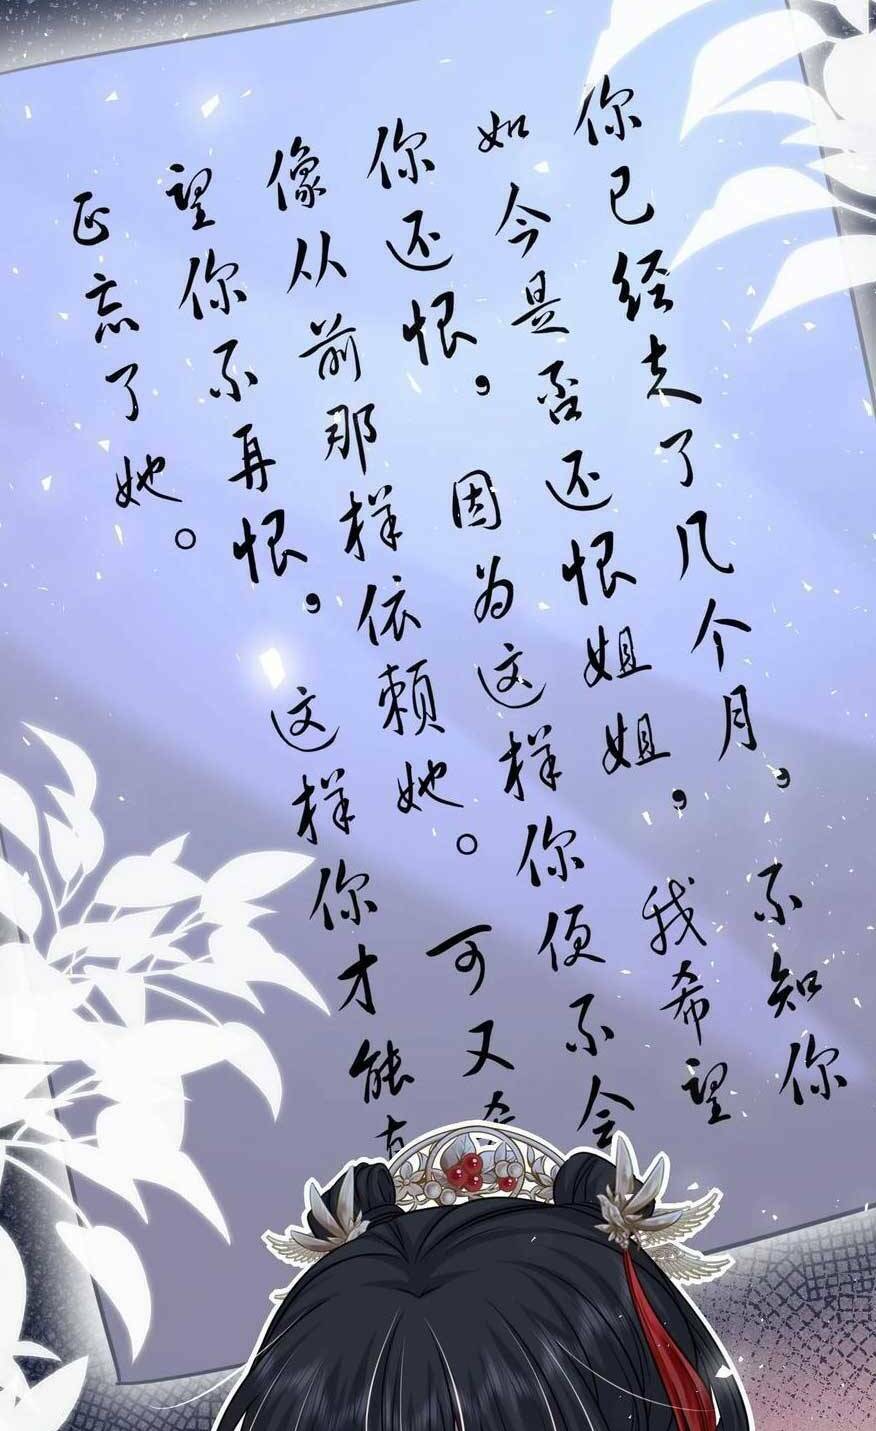 你已经去了几个月，不知你
如今是否还恨姐姐，我希望
你还恨，因为这样你便不会
像从前那样依赖她。可又
望你不再恨，这样你才能
正忘了她。